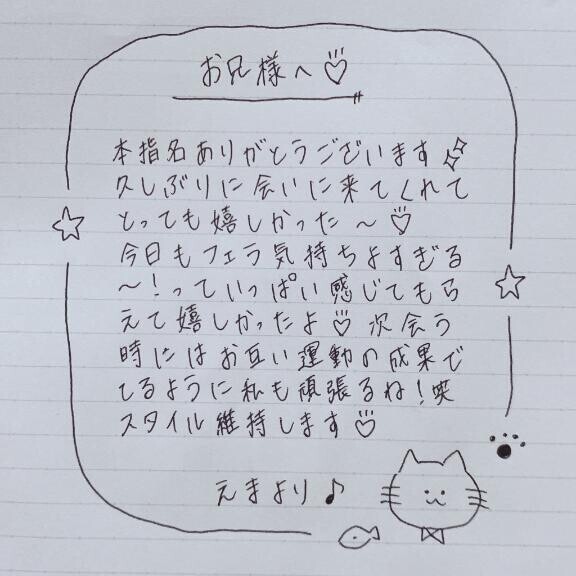 お兄様へ♡
本指名ありがとうございます
久しぶりに会いに来てくれて
とっても嬉しかった〜♡
今日もフェラ気持ちよすぎる
〜!っていっぱい感じてもら
えて嬉しかったよ♡次会う
時にはお互い運動の成果で
てるように私も頑張るね!笑
スタイル維持します♡
えまより♪